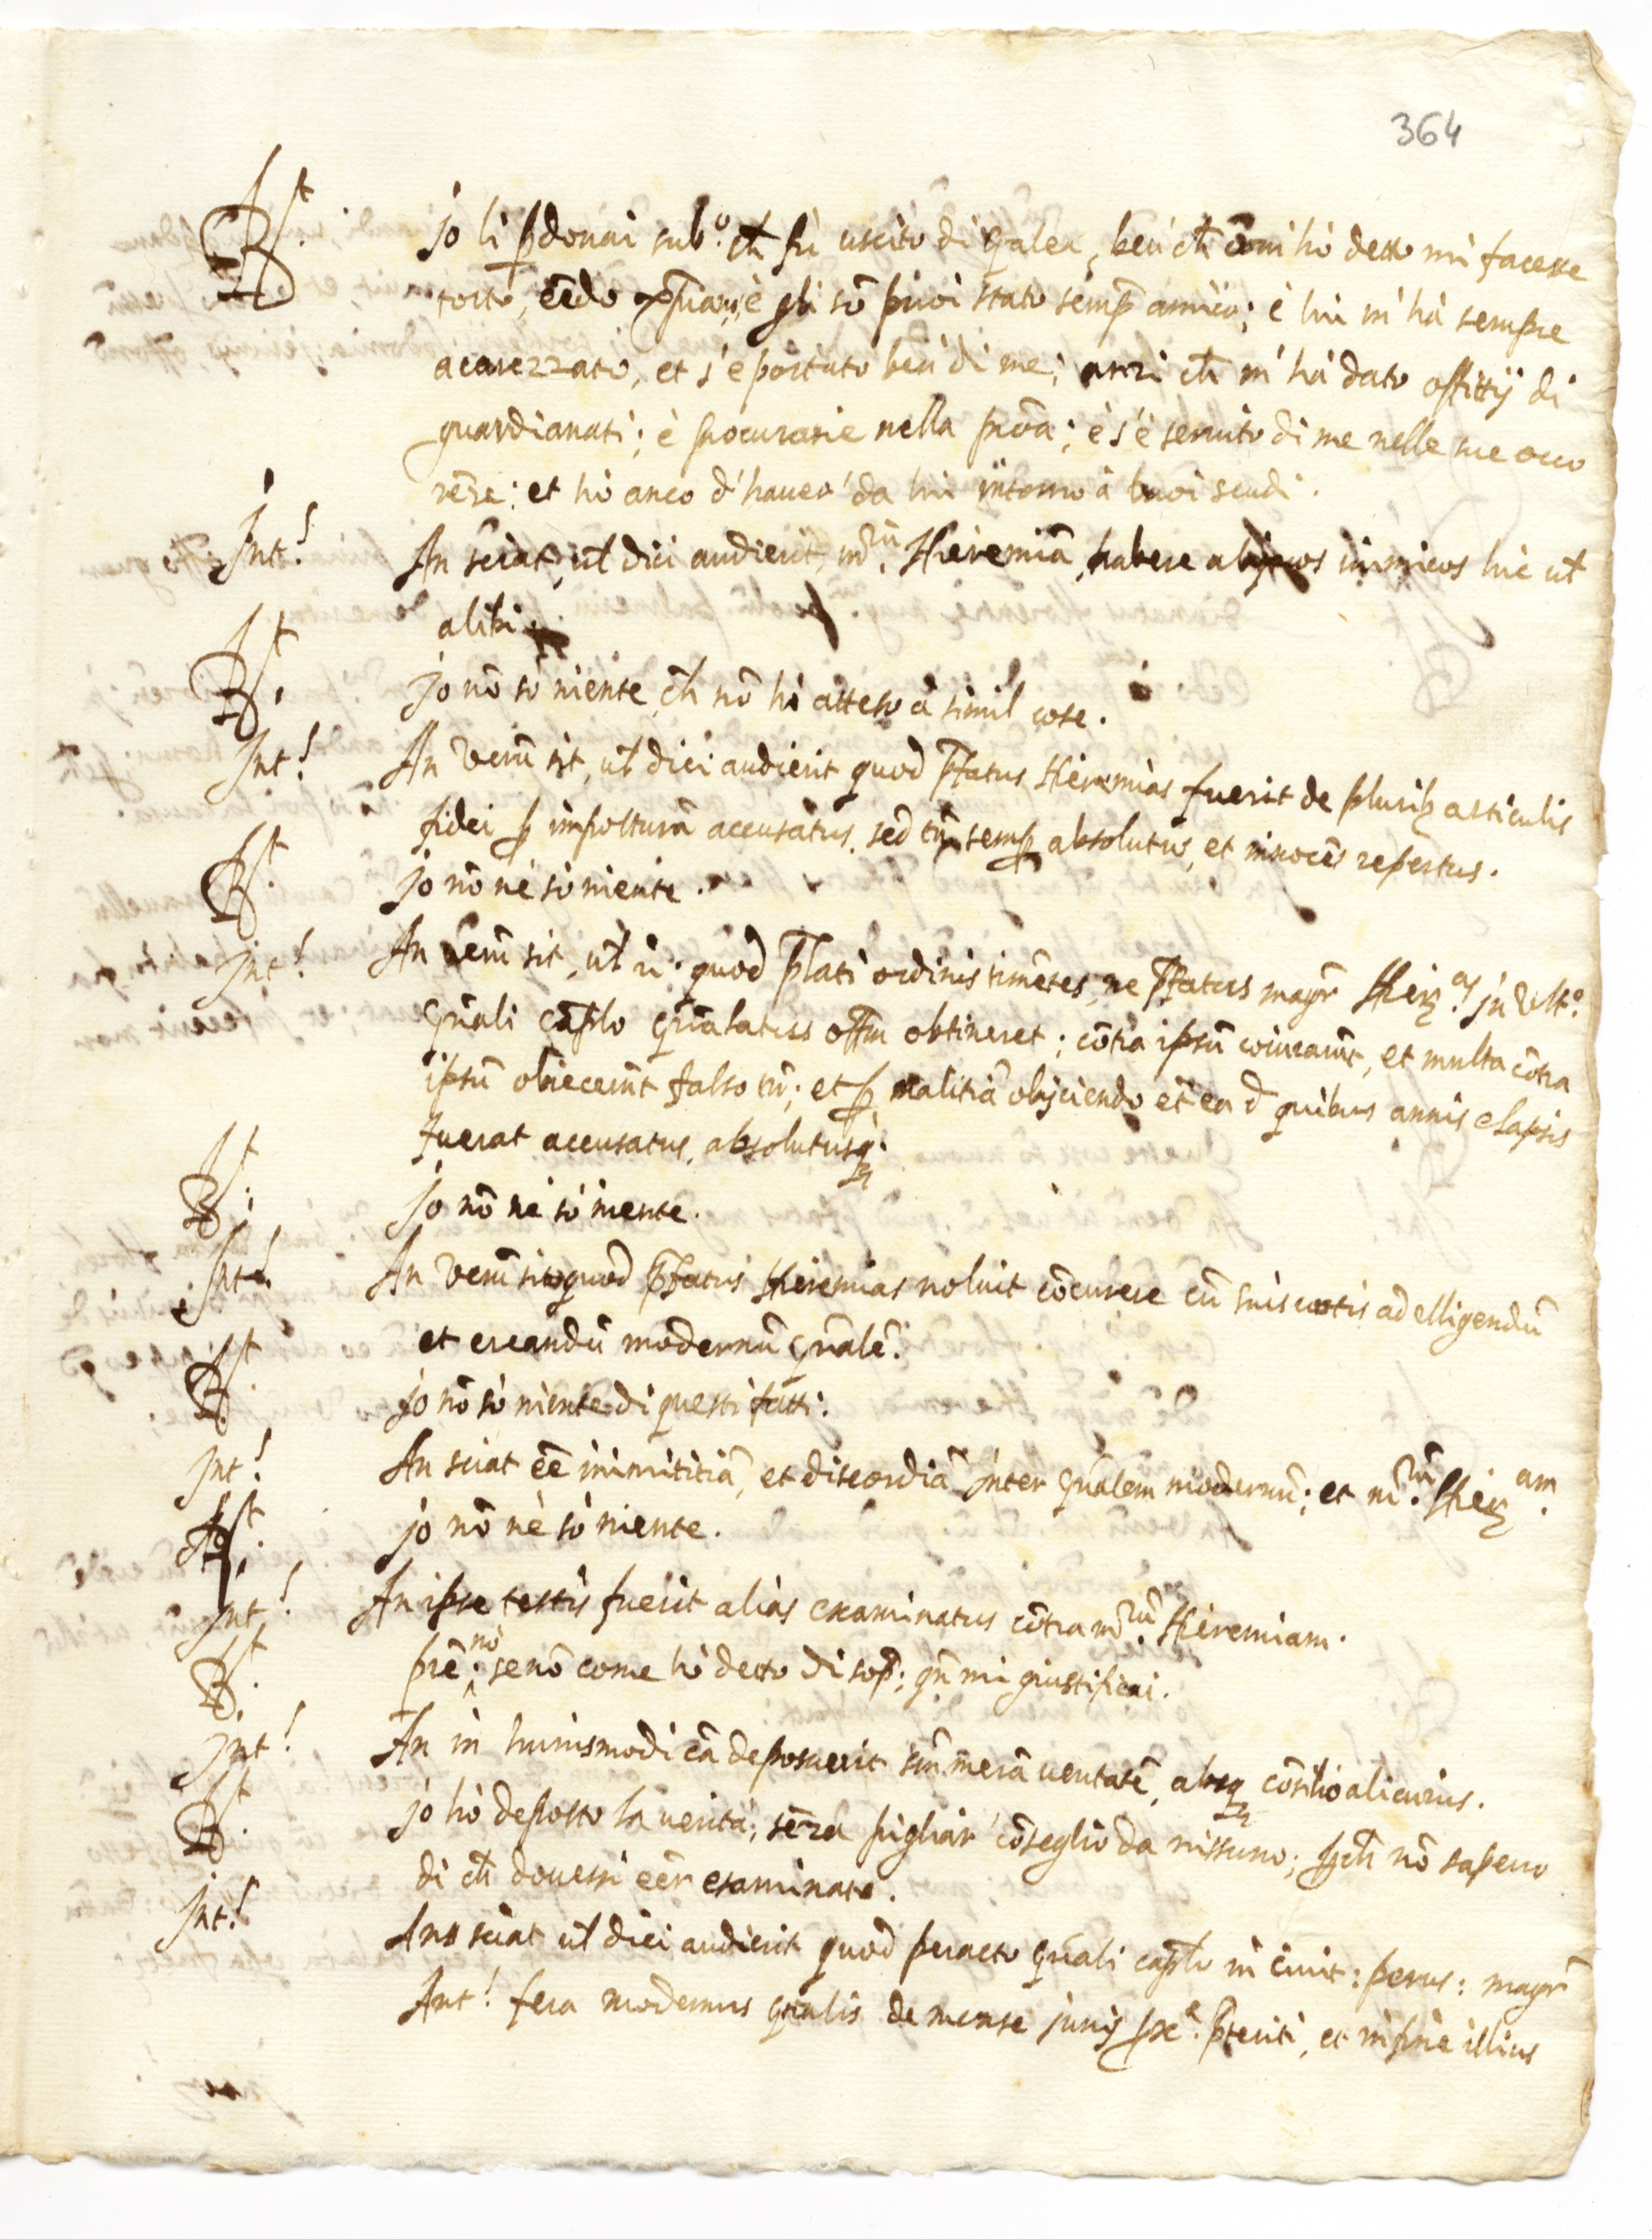 364
R.st Jo li ꝑdonai sub.o ch̃ fù uscito di galea, ben'ch̃ com̃ hò detto mi facesse
torto, ẽẽdo xp̃iano; è gli sõ puoi stato semp̃ amico; è lui m'hà sempre
acarezzato, et s'è portato ben' di me; anzi ch̃ m'hà dato offitij di
guardianati; è procurarie nella proã; è s'è seruito di me nelle sue occo
rẽze; et hò anco d'hauer' da lui intorno à scudi.
Int! An sciat, ul̃ dici audierit, m.rũ Hieremiã, habere inimicos hic ul̃
alibi.
R.st Jo nõ sò niente, ch̃ nõ hò atteso à simil cose.
Int! An verũ sit, ul̃ dici audierit quod p̃fatus Hieremias fuerit de plurib; articulis
fidei ꝑ imposturã accusatus, sed tñ semꝑ absolutus, et innocẽs repertus.
R.st Jo nõ nè sò niente.
Int! An verũ sit, ul̃ quod p̃lati ordinis timẽtes, ne p̃fatus magr̃ Hier.as in Vlt.o
gñali cap̃lo gñalatus offm̃ obtineret; cõtra ipsũ coniurarũt, et multa cõtra
ipsũ obiecerũt falso tñ; et ꝑ malitiã obijciendo et̃ ea d̃ quibus annis elapsis
fuerat accusatus, absolutusq;.
R.st Jo nõ nè sò niente.
Int! An verũ sit quod p̃fatus Hieremias noluit cõcurere cũ suis uotis ad elligendũ
et creandũ modernũ gñalẽ.
R.st Jo nõ sò niente di questi fatti.
Int! An sciat ẽẽ inimititiã, et discordiã inter gñalem modernũ; et m.rũ Hier.am
R.st Jo nõ nè sò niente.
Int! An ipse testis fuerit alias examinatus cõtra m.rũ Hieremiam.
R.st Prẽ nò; se nõ come hò detto di sop̃; qñ mi giustificai.
Int! An in huiusmodi cã deposuerit suã merã ueritatẽ, absq; cõsilio alicuius.
R.st Jo hò deposto la uerità; sẽza pigliar' cõseglio da nissuno; ꝑch̃ nõ sapeuo
di ch̃ douessi eẽr esaminato.
Int! An sciat ul̃ dici audierit quod peracto gñali cap̃lo in ciuit: perus: magr̃
Ant! fera modernus gñalis de mense junij px.e p̃teriti, et in fine illius